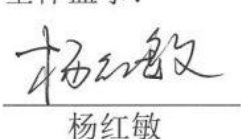 杨红敏
杨红敏